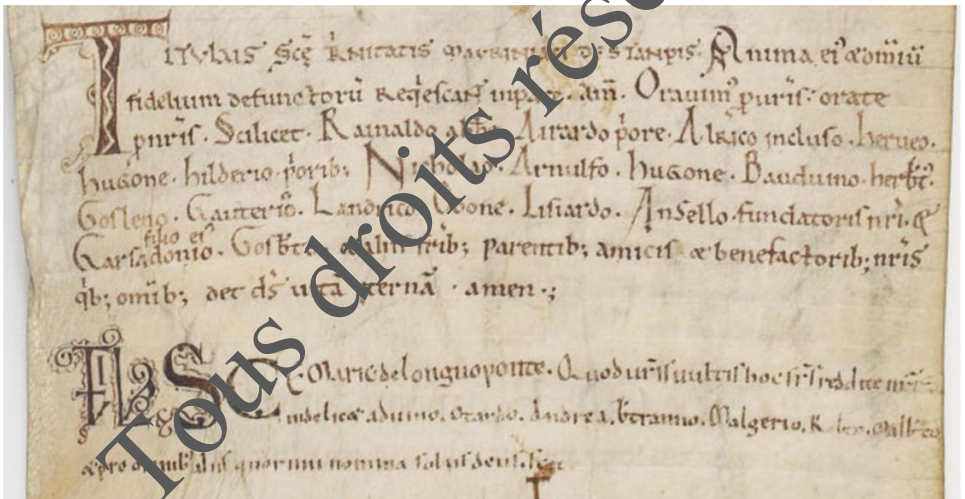 TITVLVS Scę TRNITATIS MAVRINIACI DE STANPIS. Anima ei' & omiũ
fidelium defunctorũ Reqiescat inpace. am̃. Oravim' p uris. orate
p nris. Scilicet. Rainaldo abbe. Airardo p̓ore. Alrico incluso. herveo.
husone. hilderio. p̓orib; Nicholao. Arnulfo. huGone. Bauduino. herbt'.
Gosleno. Gauterio. Landrico. Odone. Lisiardo. Ansello. fundatoris nr̃i. &
filio ei'
Garsadonio. Gosbto. & aliis frib; parentib; amicis & benefactorib; nris
q̓b; omib; det ds̃ uitã eternã. amen.;
SCE Marie de longuoponte. Quod uris uultis hoc frs̃ reddite nris
uidelicet aduino. otardo. Andrea. btranno. Malgerio. Robto.
& pro omnib' aliis quorum nomina solus deus.
Tous droits rése